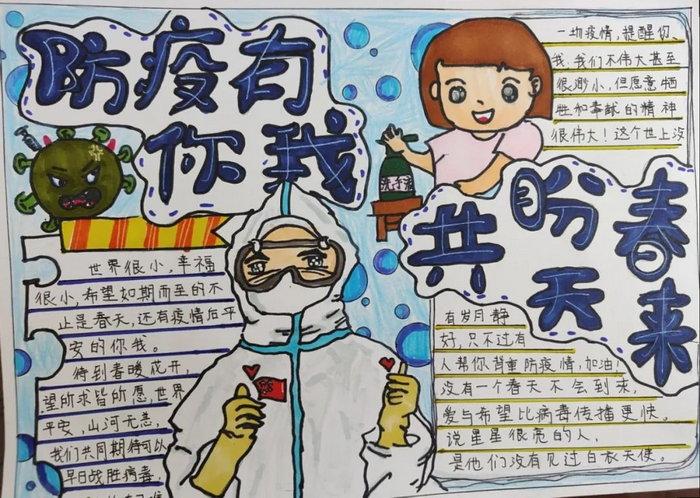 防疫有
你我
共盼春
天来
世界很小,幸福
很小,希望如期而至的不
止是春天,还有疫情后平
安的你我。
待到春暖花开,
望所求皆所愿,世界
平安,山河无恙,
我们共同期待可以
早日战胜病毒,
一场疫情,提醒你、
我,我们不伟大甚至
很渺小,但愿意牺
牲和奉献的精神
很伟大!这个世上没
有岁月静
好,只不过有
人帮你背重防疫情,加油!
没有一个春天不会到来,
爱与希望比病毒传播更快。
说星星很亮的人,
是他们没有见过白衣天使。
洗手